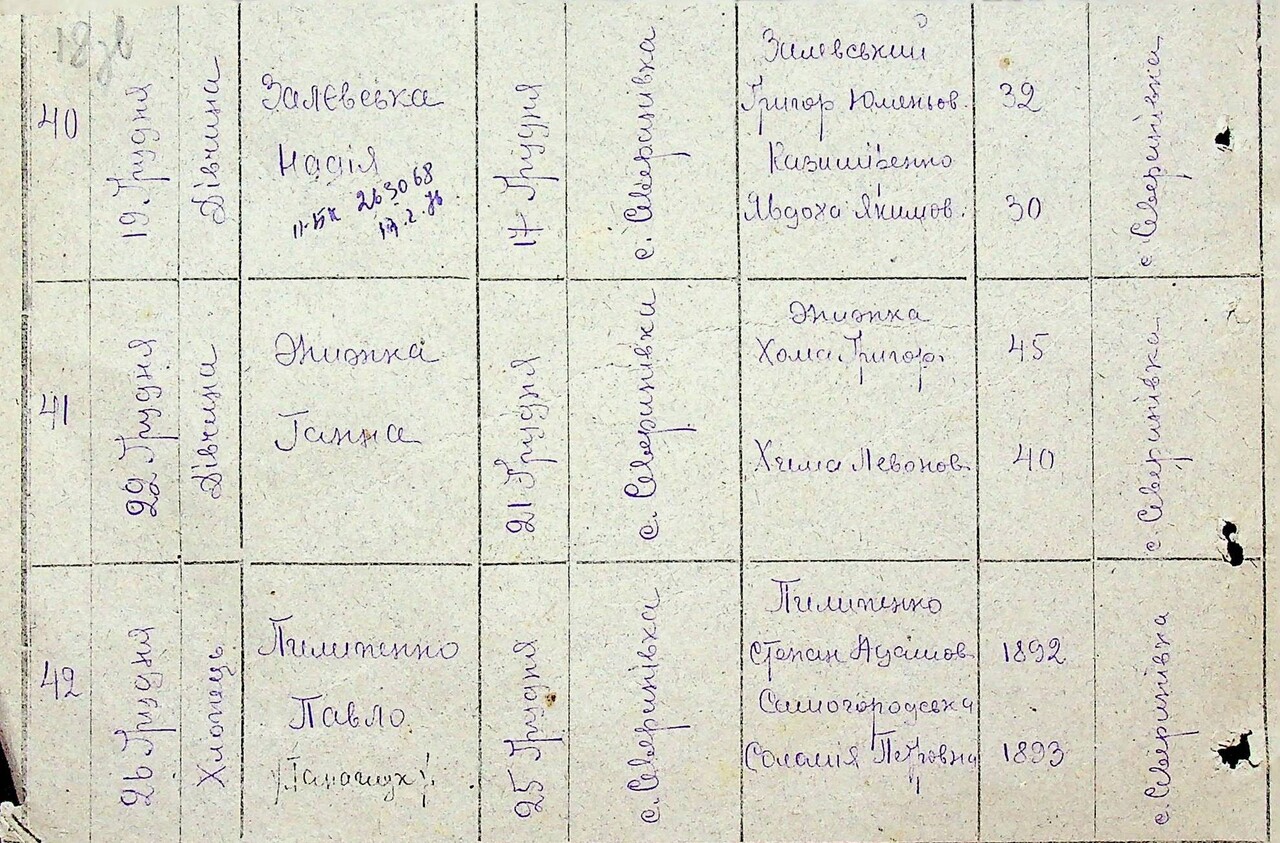 18 зв
40
19 Грудня
Дівчина
Залєвська
Надія
II-БК 263068
17.2.76
17 Грудня
с. Северинівка
Залевський
Григор Юменьов.
32
Казиміренко
Явдоха Якимов.
30
с. Северинівка
41
22 Грудня
Дівчина
Книжка
Ганна
21 Грудня
с. Северинівка
Книжка
Хома Григор.
45
Хима Левонов.
40
с. Северинівка
42
26 Грудня
Хлопець
Пилипенко
Павло
25 Грудня
с. Северинівка
Пилипенко
Степан Адамов.
1892
Самогородська
Соломія Петровна
1893
с. Северинівка